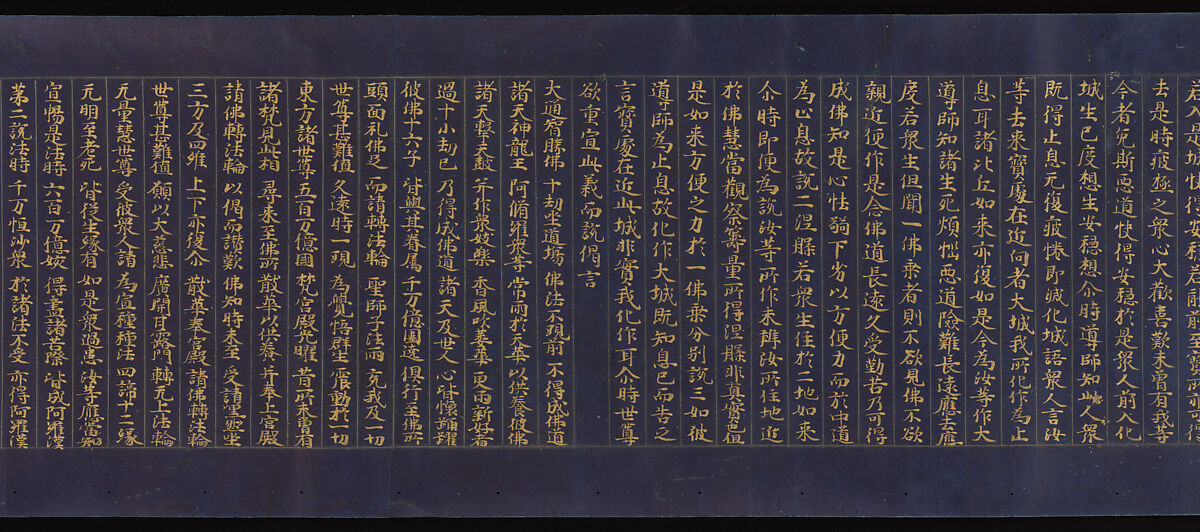 若入是城快得安穩若能前至寶所亦可得
去是時疲極之衆心大歡喜歎未曾有我等
今者免斯惡道快得安穩於是衆人前入化
城生已度想生安穩想尒時導師知此人衆
既得止息无復疲惓即滅化城語衆人言汝
等去來寶處在近向者大城我所化作為止
息耳諸比丘如來亦復如是今為汝等作大
導師知諸生死煩惱惡道險難長遠應去應
度若衆生但聞一佛乘者則不欲見佛不欲
親近便作是念佛道長遠久受勤苦乃可得
成佛知是心怯弱下劣以方便力而於中道
為止息故說二涅槃若衆生住於二地如來
尒時即便為說汝等所作未辦汝所住地近
於佛慧當觀察籌量所得涅槃非真實也但
是如來方便之力於一佛乘分别說三如彼
導師為止息故化作大城既知息已而告之
言寶處在近此城非實我化作耳尒時世尊
欲重宣此義而說偈言
大通智勝佛 十劫坐道場 佛法不現前 不得成佛道
諸天神龍王 阿脩羅衆等 常雨於天華 以供養彼佛
諸天擊天鼓 并作衆妓樂 香風吹萎華 更雨新好者
過十小劫已 乃得成佛道 諸天及世人 心皆懷踊躍
彼佛十六子 皆與其眷属 千万億圍遶 俱行至佛所
頭面礼佛足 而請轉法輪 聖師子法雨 充我及一切
世尊甚難值 久遠時一現 為覺悟群生 震動於一切
東方諸世尊 五百万億國 梵宮殿光曜 昔所未曾有
諸梵見此相 尋來至佛所 散華以供養 并奉上宮殿
請佛轉法輪 以偈而讚歎 佛知時未至 受請嘿然坐
三方及四維 上下亦復尒 散華奉宮殿 請佛轉法輪
世尊甚難值 願以大慈悲 廣開甘露門 轉无上法輪
无量慧世尊 受彼衆人請 為宣種種法 四諦十二緣
无明至老死 皆從生緣有 如是衆過患 汝等應當知
宣暢是法時 六百万億姟 得盡諸苦際 皆成阿羅漢
第二說法時 千万恒沙衆 於諸法不受 亦得阿羅漢